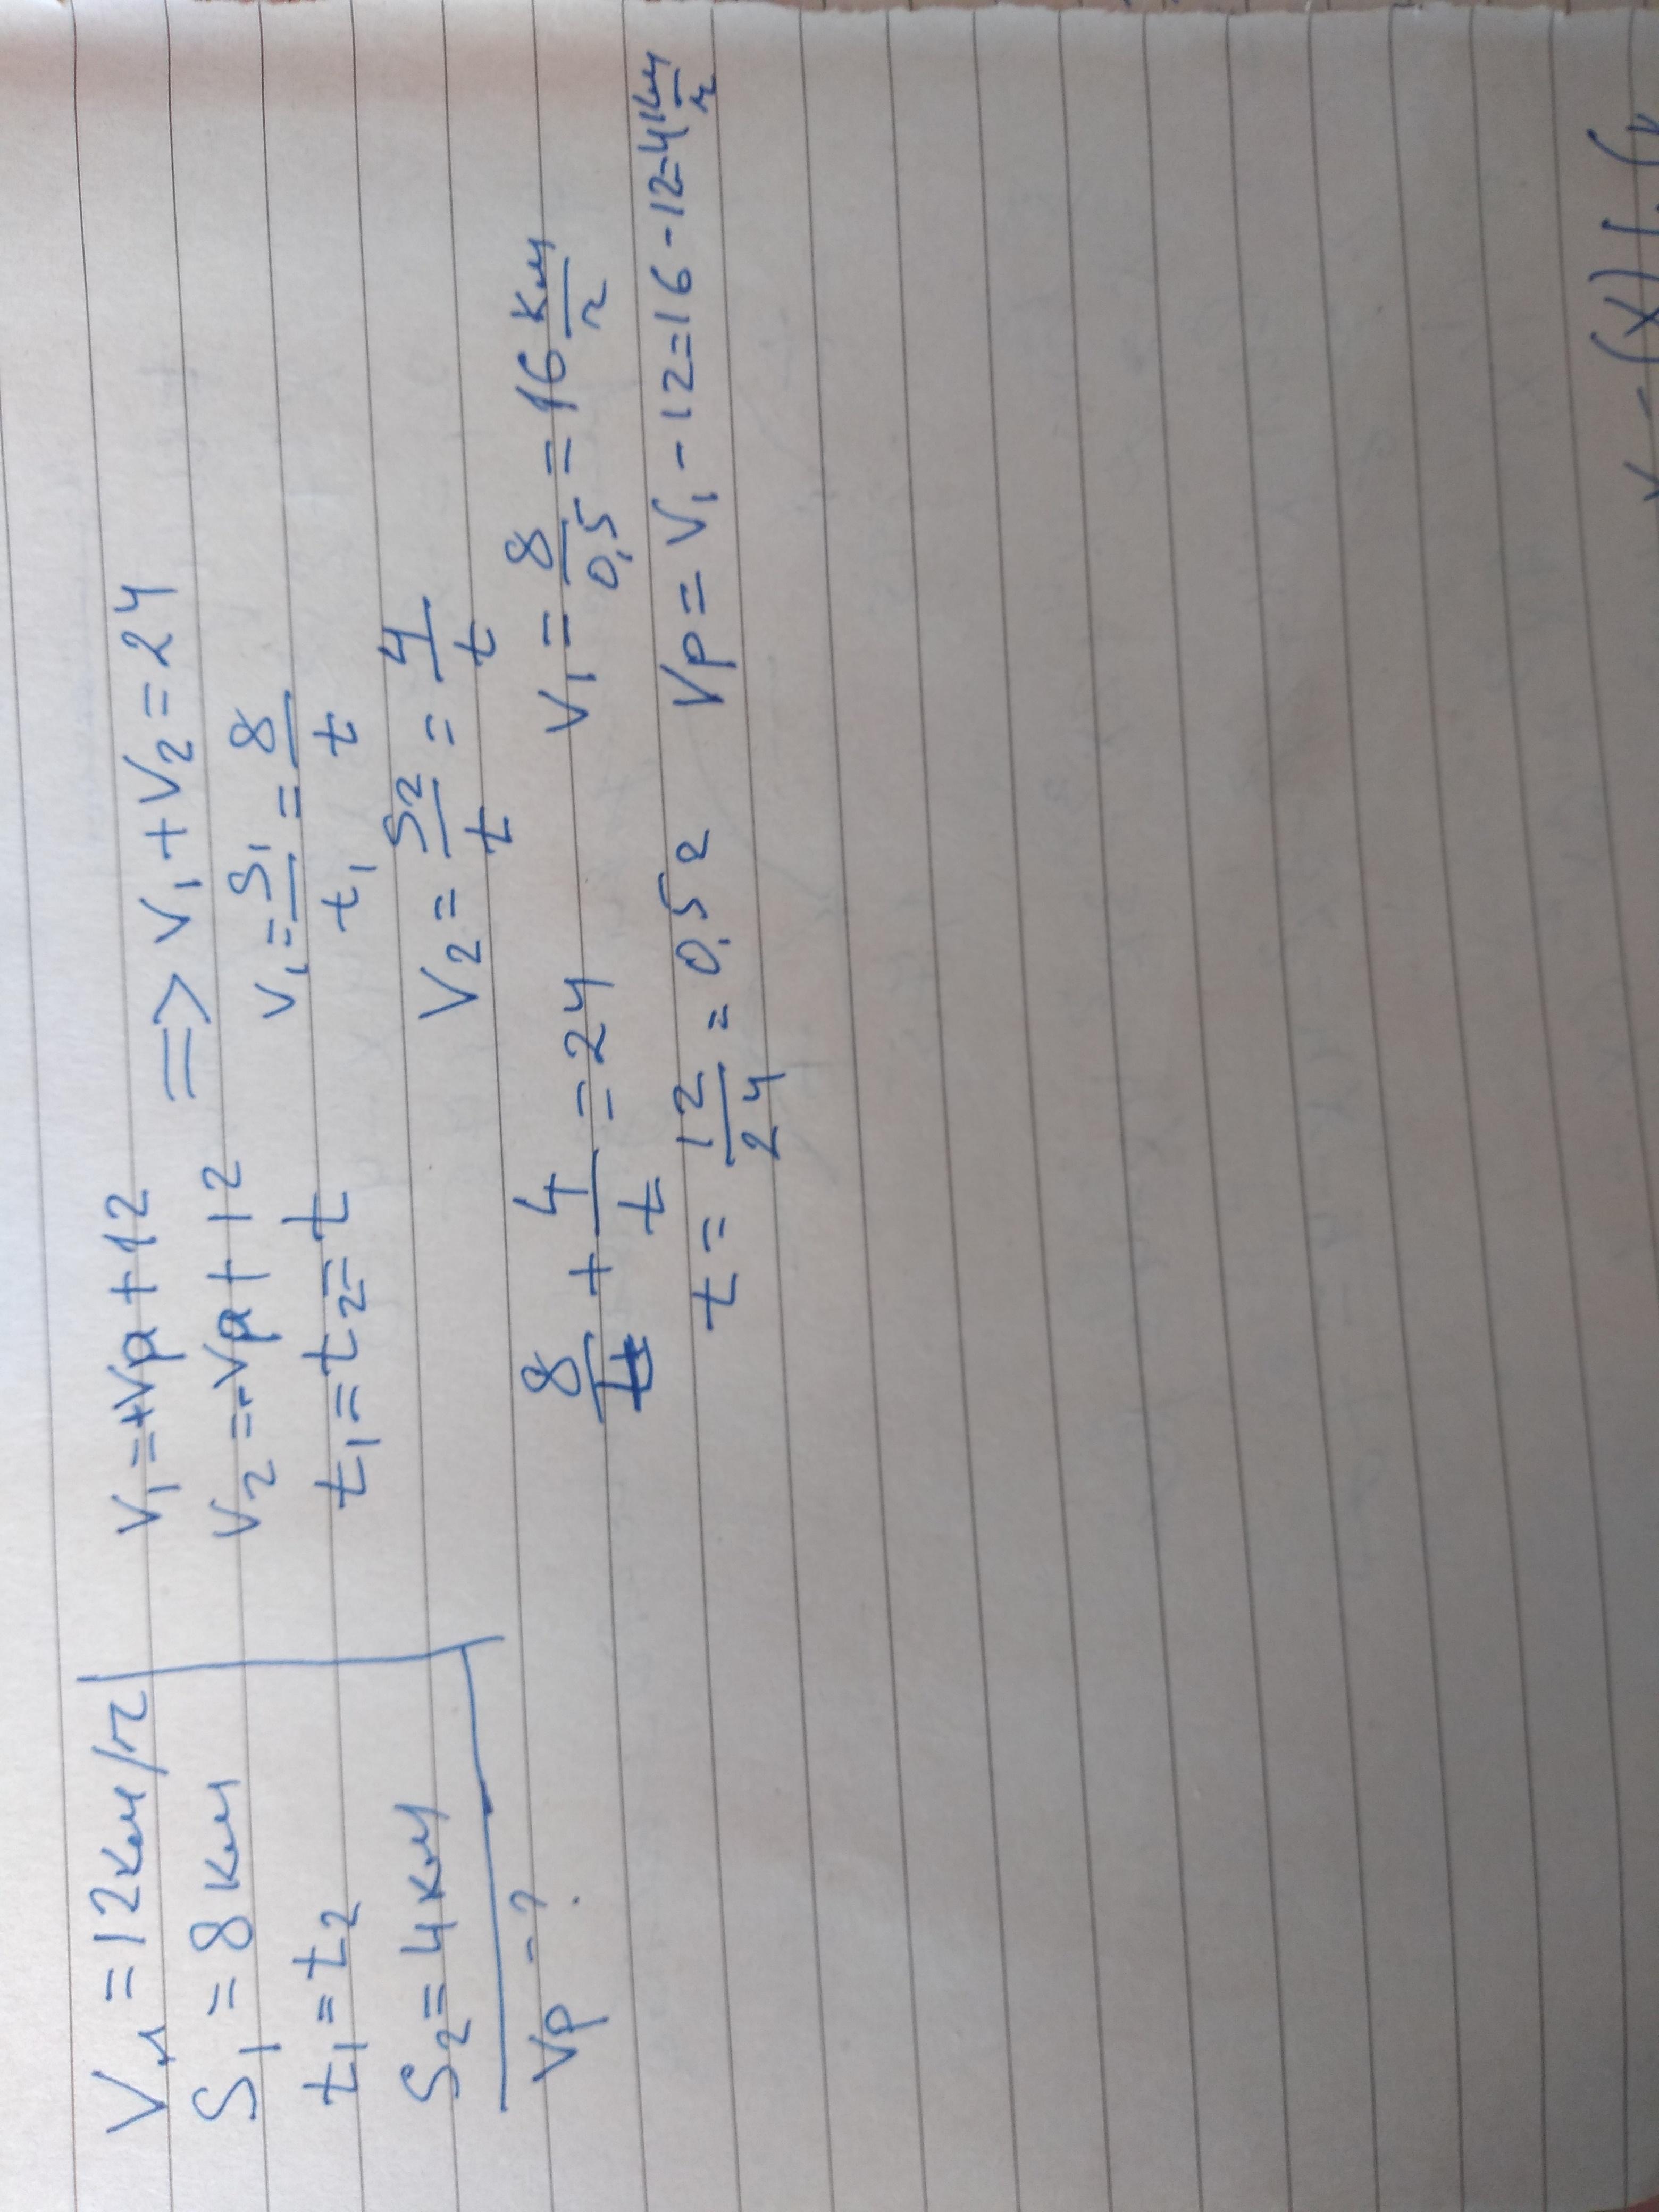 Vл = 12км/г
S₁ = 8 км
t₁ = t₂
S₂ = 4 км
Vр - ?
V₁ = +Vр + 12
V₂ = -Vр + 12
=> V₁ + V₂ = 24
t₁ = t₂ = t
V₁ = S₁/t₁ = 8/t
V₂ = S₂/t = 4/t
8/t + 4/t = 24
t = 12/24 = 0,5 г
V₁ = 8/0,5 = 16 км/г
Vр = V₁ - 12 = 16 - 12 = 4 км/г